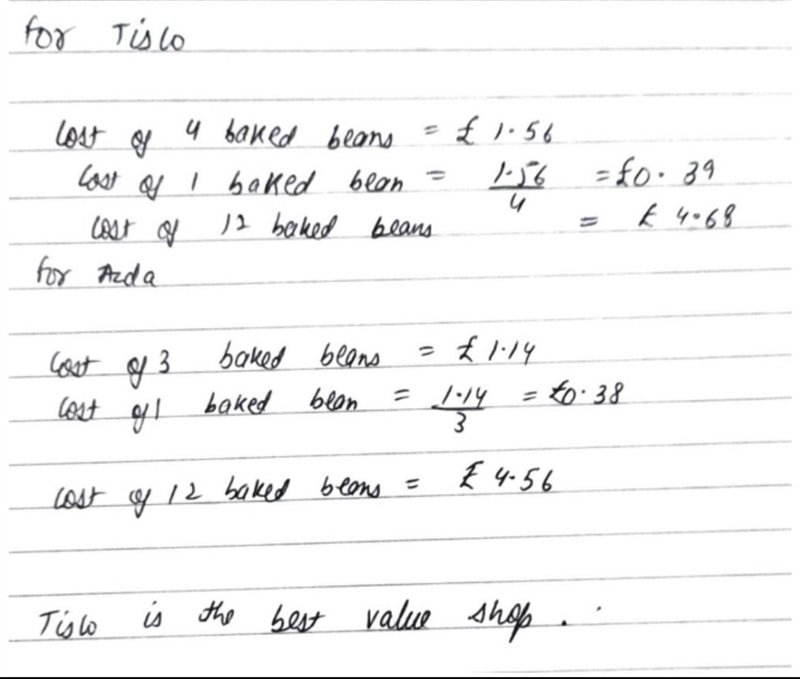 for Tislo
Cost of 4 baked beans = £ 1.56
Cost of 1 baked bean = 1.56/4 = £0.39
Cost of 12 baked beans = £ 4.68
for Azda
Cost of 3 baked beans = £ 1.14
Cost of 1 baked bean = 1.14/3 = £0.38
Cost of 12 baked beans = £ 4.56
Tislo is the best value shop.